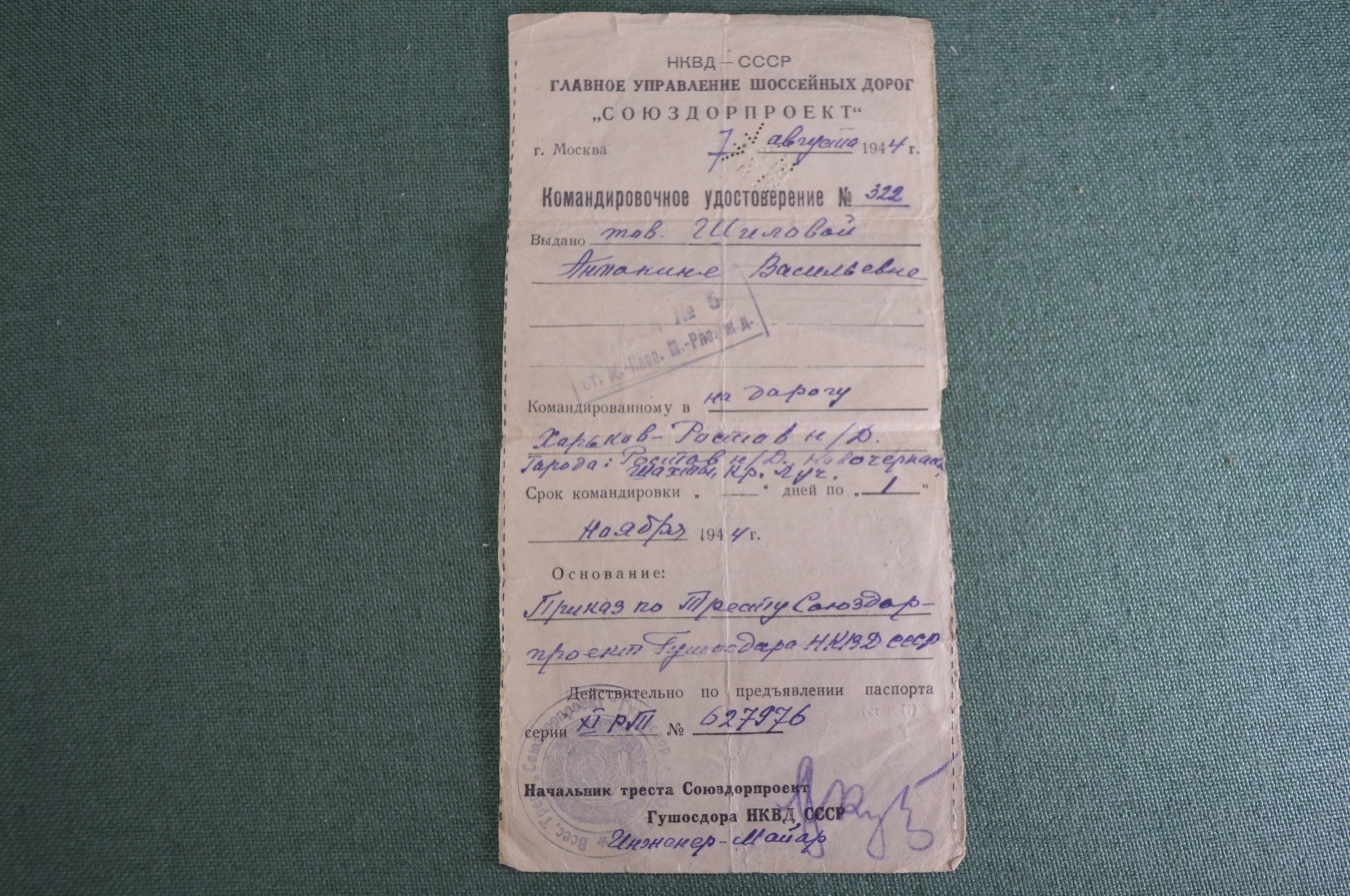 НКВД — СССР
ГЛАВНОЕ УПРАВЛЕНИЕ ШОССЕЙНЫХ ДОРОГ
„СОЮЗДОРПРОЕКТ“
г. Москва 7 августа 1944 г.
Командировочное удостоверение № 322
Выдано тов. Шиловой
Антонине Васильевне
№ 6
М.-Ряз. ж.д.
Командированному в на дорогу
Харьков - Ростов н/Д.
Города: Ростов н/Д. Новочеркас
Шахты, Кр. Луч.
Срок командировки „ — “ дней по „ 1 “
Ноября 1944 г.
Основание:
Приказ по Тресту Союздор-
проект Гушосдора НКВД СССР
Действительно по предъявлении паспорта
серии XI РТ № 627976
Начальник треста Союздорпроект
Гушосдора НКВД СССР
Инженер-Майор